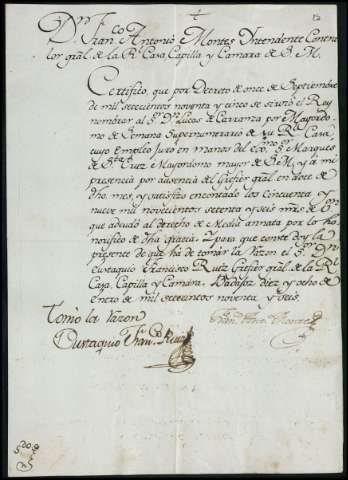 12
Dn. Franco. Antonio Montes Yntendente Contra
lor gral. de la Rl. Casa, Capilla y Camara de S. M.
Certifico, que por Decreto de once de Septiembre
de mil setecientos noventa y cinco se sirvió el Rey
nombrar al Sr. Dn. Lucas de Carranza por Mayordo
mo de Semana Supernumerario de su Rl. Casa,
cuyo empleo juró en manos del Excmo. Sr. Marques
de Sta. Cruz Mayordomo mayor de S. M. y á mi
presencia por ausencia del Grefier gral. en doce de
dho. mes, y satisfizo encontado los cincuenta y
nueve mil novecientos setenta y seis mrs. de von.
que adeudó al derecho de Media annata por lo ho
norifico de dha gracia. Y para que conste doy la
presente de que ha de tomar la razon el Sr. Dn.
Eustaquio Francisco Ruiz Grefier gral. de la Rl.
Casa, Capilla y Camara. Badajoz diez y ocho de
Enero de mil setecientos noventa y seis.
Fran. Anto. Montes
Tomó la razon
Eustaquio Franco. Ruiz